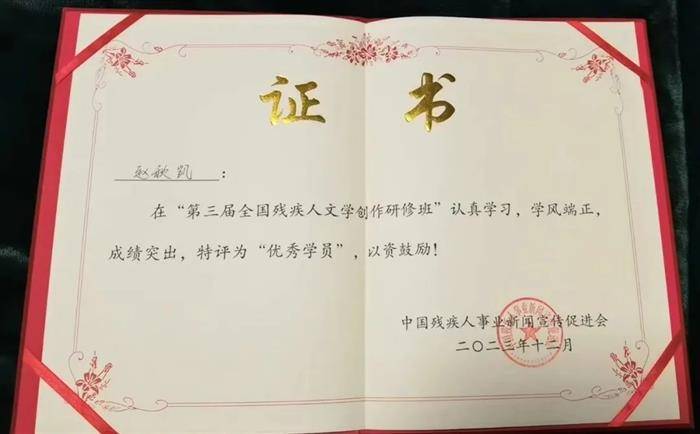 证书
赵秋凯：
在“第三届全国残疾人文学创作研修班”认真学习，学风端正，
成绩突出，特评为“优秀学员”，以资鼓励！
中国残疾人事业新闻宣传促进会
二〇二二年十二月